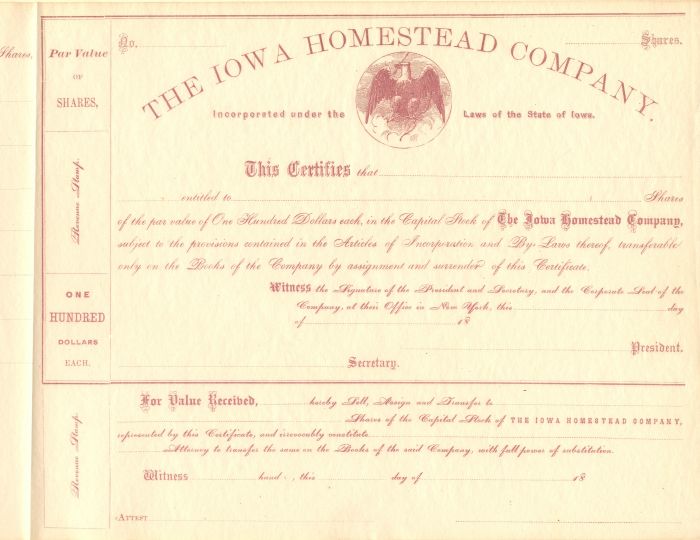 Shares,
Par Value
OF
SHARES,
Revenue Stamp.
ONE
HUNDRED
DOLLARS
EACH.
Revenue Stamp.
No. Shares.
THE IOWA HOMESTEAD COMPANY.
Incorporated under the Laws of the State of Iowa.
This Certifies that
entitled to Shares
of the par value of One Hundred Dollars each, in the Capital Stock of The Iowa Homestead Company,
subject to the provisions contained in the Articles of Incorporation and By-Laws thereof, transferable
only on the Books of the Company by assignment and surrender of this Certificate.
Witness the Signature of the President and Secretary, and the Corporate Seal of the
Company, at their Office in New York, this day
of 18
President.
Secretary.
For Value Received, hereby Sell, Assign and Transfer to
Shares of the Capital Stock of THE IOWA HOMESTEAD COMPANY,
represented by this Certificate, and irrevocably constitute
Attorney to transfer the same on the Books of the said Company, with full power of substitution.
Witness hand , this day of 18
ATTEST